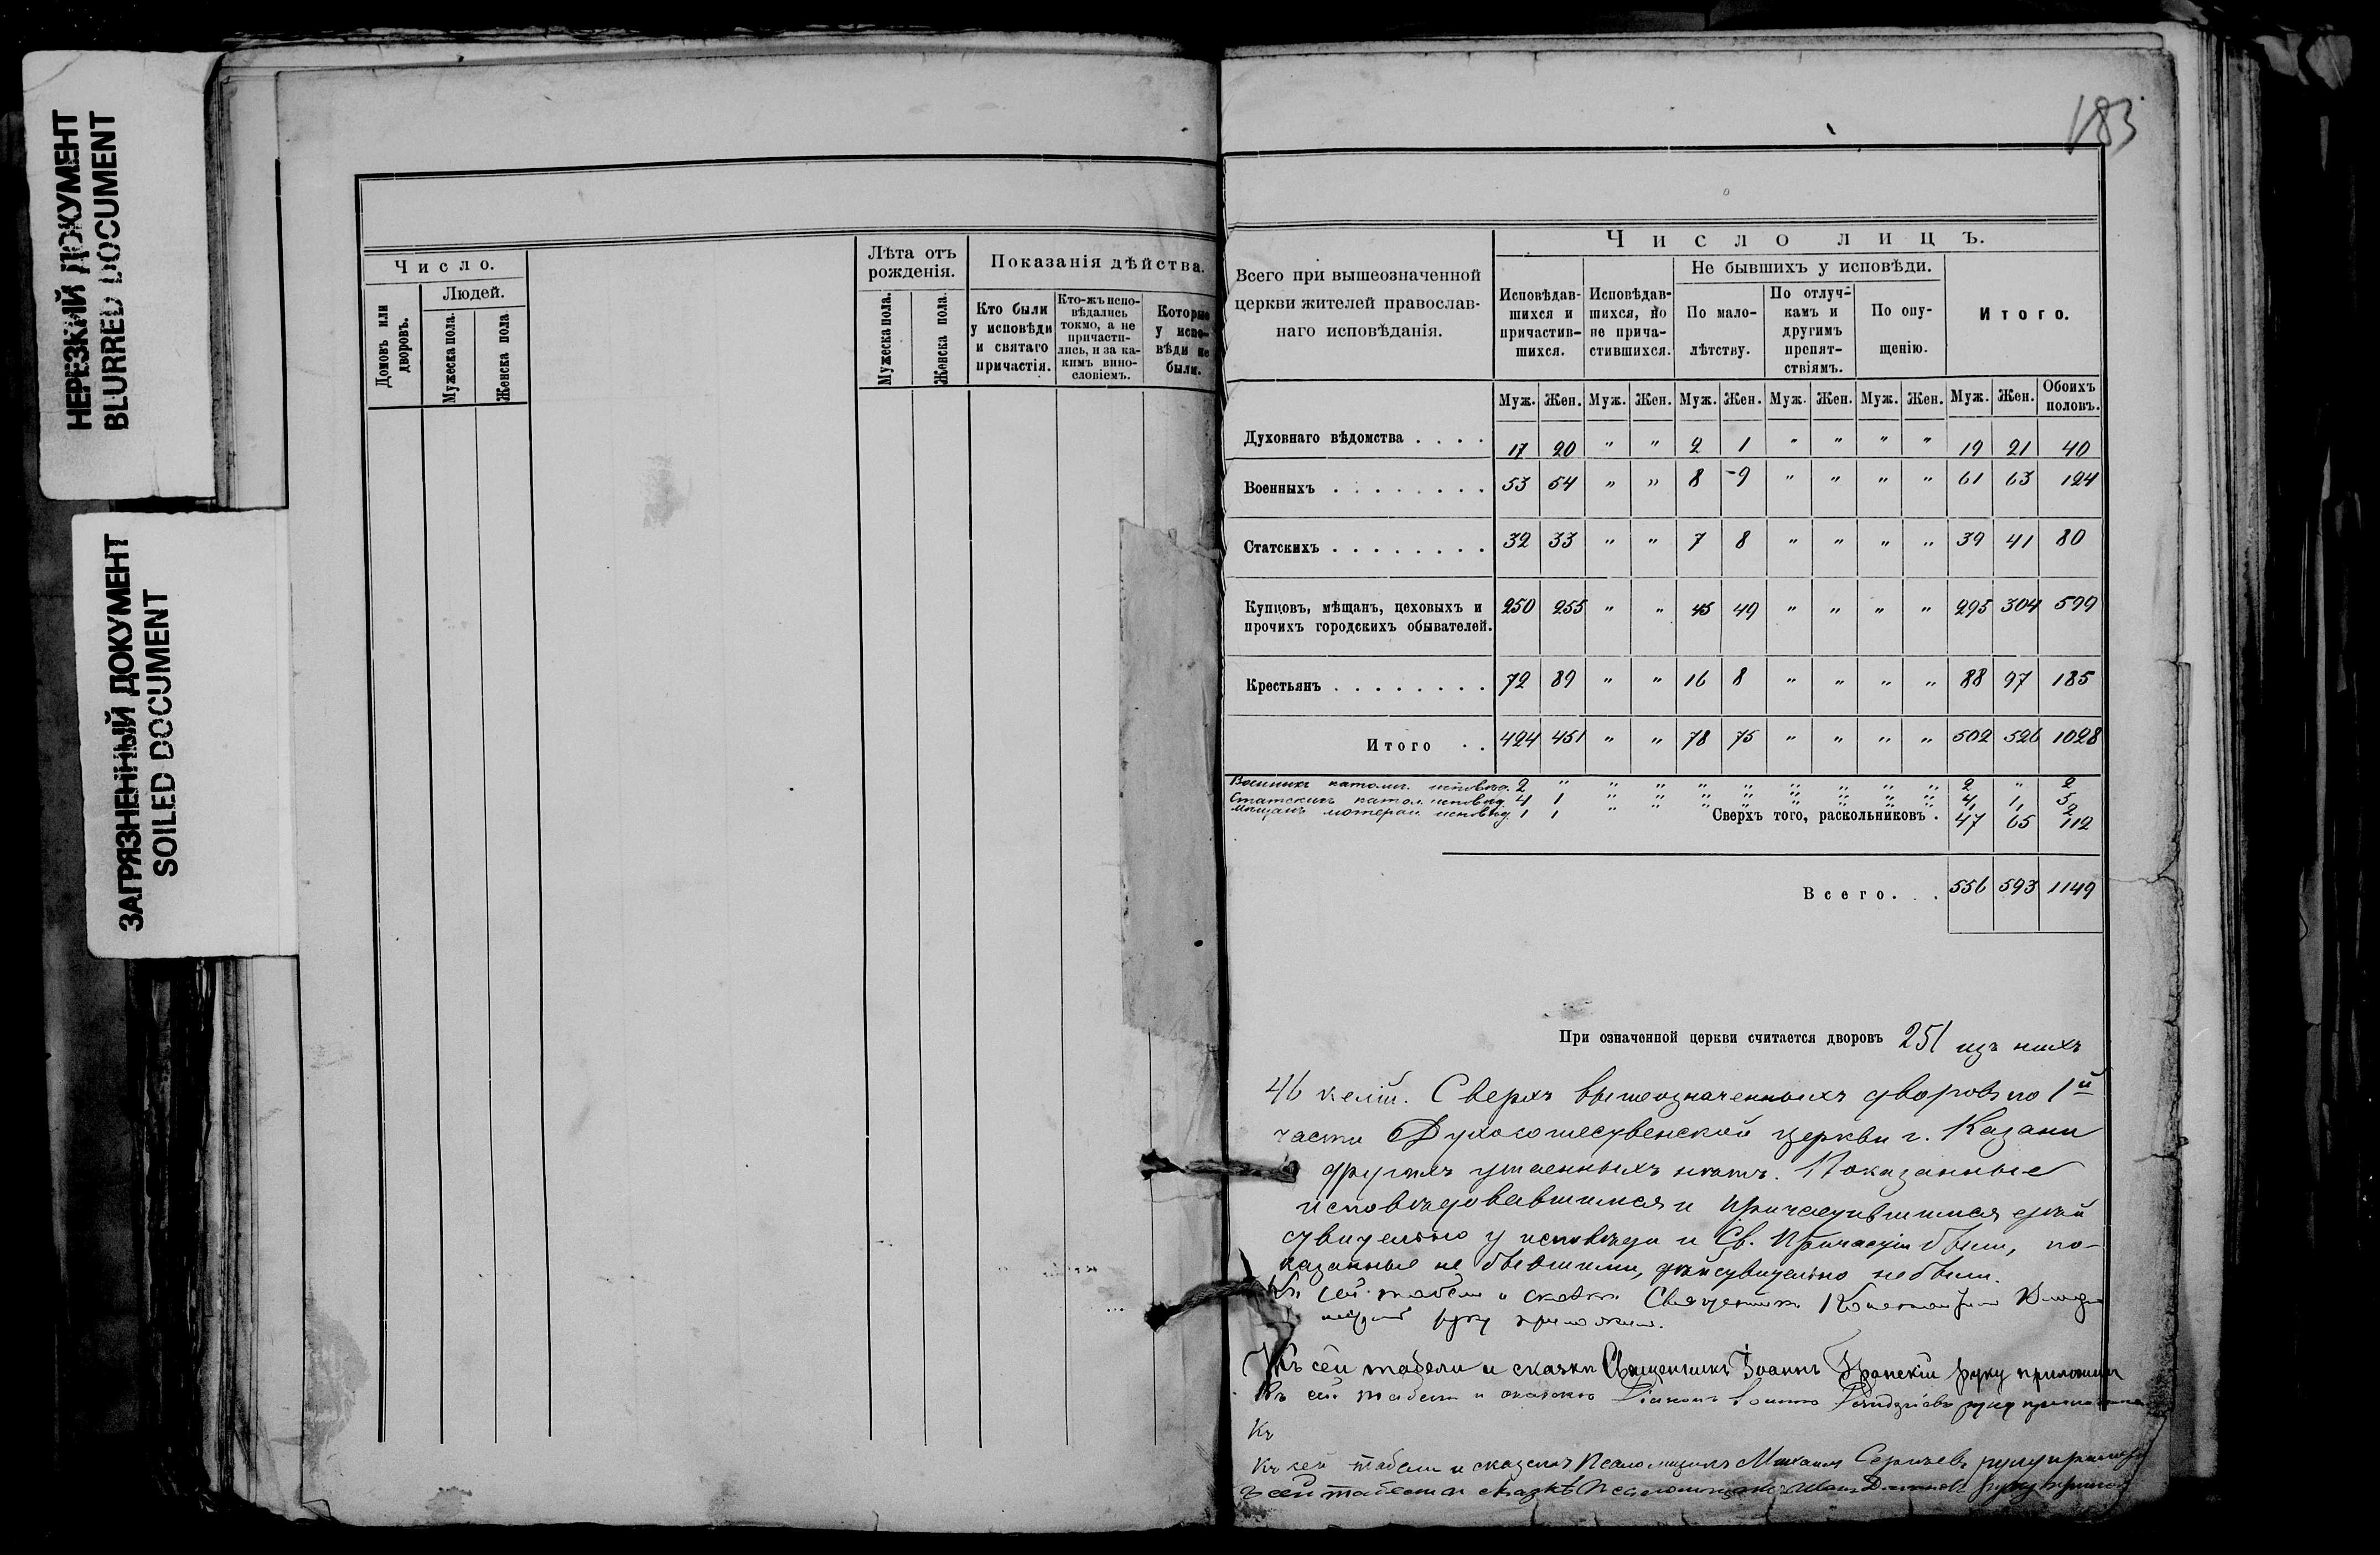 НЕРЕЗКИЙ ДОКУМЕНТ
BLURRED DOCUMENT
ЗАГРЯЗНЕННЫЙ ДОКУМЕНТ
SOILED DOCUMENT
Число.
Домовъ или дворовъ.
Людей.
Мужеска пола.
Женска пола
Лѣта отъ рожденія.
Мужеска пола.
Женска пола.
Показанія дѣйства.
Кто были у исповѣди и святаго причастія.
Кто-жъ исповѣдались токмо, а не причастились, и за какимъ винословіемъ.
Которые у исповѣди не были.
183
Всего при вышеозначенной церкви жителей православнаго исповѣданія.
Число лицъ.
Исповѣдавшихся и причастившихся.
Исповѣдавшихся, но не причастившихся.
Не бывшихъ у исповѣди.
По малолѣтству.
По отлучкамъ и другимъ препятствіямъ.
По опущенію.
Итого.
Муж. Жен. Муж. Жен. Муж. Жен. Муж. Жен. Муж. Жен. Муж. Жен. Обоихъ половъ.
Духовнаго вѣдомства . . . . 17 20 " " 2 1 " " " " 19 21 40
Военныхъ . . . . . . . . 53 54 " " 8 9 " " " " 61 63 124
Статскихъ . . . . . . . . 32 33 " " 7 8 " " " " 39 41 80
Купцовъ, мѣщанъ, цеховыхъ и прочихъ городскихъ обывателей. 250 255 " " 45 49 " " " " 295 304 599
Крестьянъ . . . . . . . . 72 89 " " 16 8 " " " " 88 97 185
Итого . . 424 451 " " 78 75 " " " " 502 526 1028
Военныхъ католич. исповѣд. 2 " " " " " " " " " 2 " 2
Статскихъ катол. исповѣд. 4 1 " " " " " " " " 4 1 5
Мѣщанъ лютеран. исповѣд. 1 1 " " " " " " " " 1 1 2
Сверхъ того, раскольниковъ . 47 65 112
Всего. . . 556 593 1149
При означенной церкви считается дворовъ 251 изъ нихъ
46 келій. Сверхъ вышеозначенныхъ дворовъ по 1й
части Духосошественской церкви г. Казани
другихъ утаенныхъ нѣтъ. Показанные
исповѣдовавшимися и причастившимися дѣй
ствительно у исповѣди и Св. Причастія были, по-
казанные не бывшими, дѣйствительно не были.
Къ сей табели и сказкѣ Священникъ
руку приложилъ.
Къ сей табели и сказкѣ Священникъ Іоаннъ руку приложилъ
Къ сей табели и сказкѣ Діаконъ руку приложилъ
Къ
Къ сей табели и сказкѣ Псаломщикъ Михаилъ Сергіевъ руку приложилъ
ъ сей табели и сказкѣ Псаломщикъ руку приложилъ